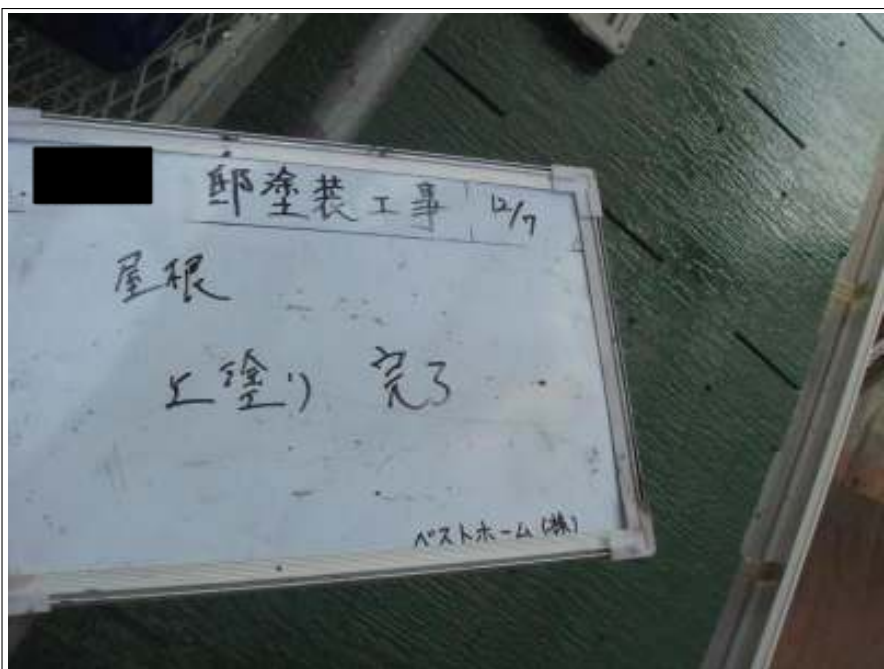 邸塗装工事 12/7
屋根
上塗り 完了
ベストホーム(株)